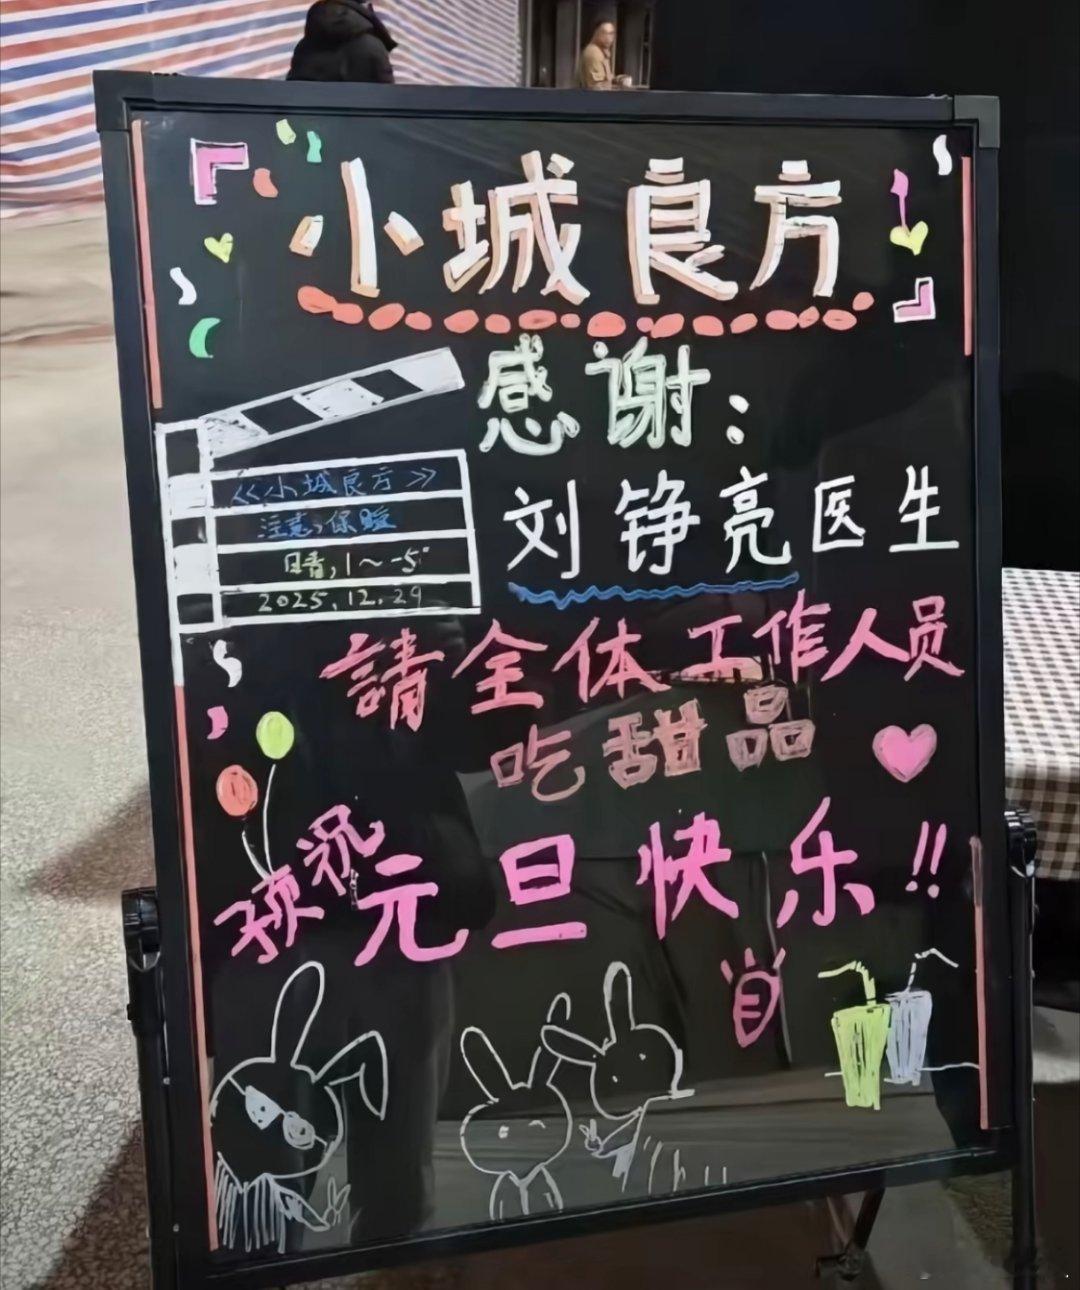 小城良方
感谢：
《小城良方》
注意，保暖
2025.12.29
刘铮亮医生
請全体工作人员
吃甜品
预祝
元旦快乐!!